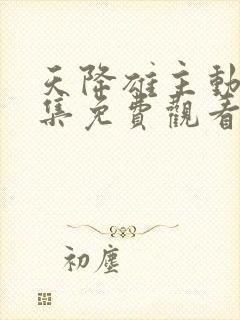 天降雄主動
集免費觀看
初塵